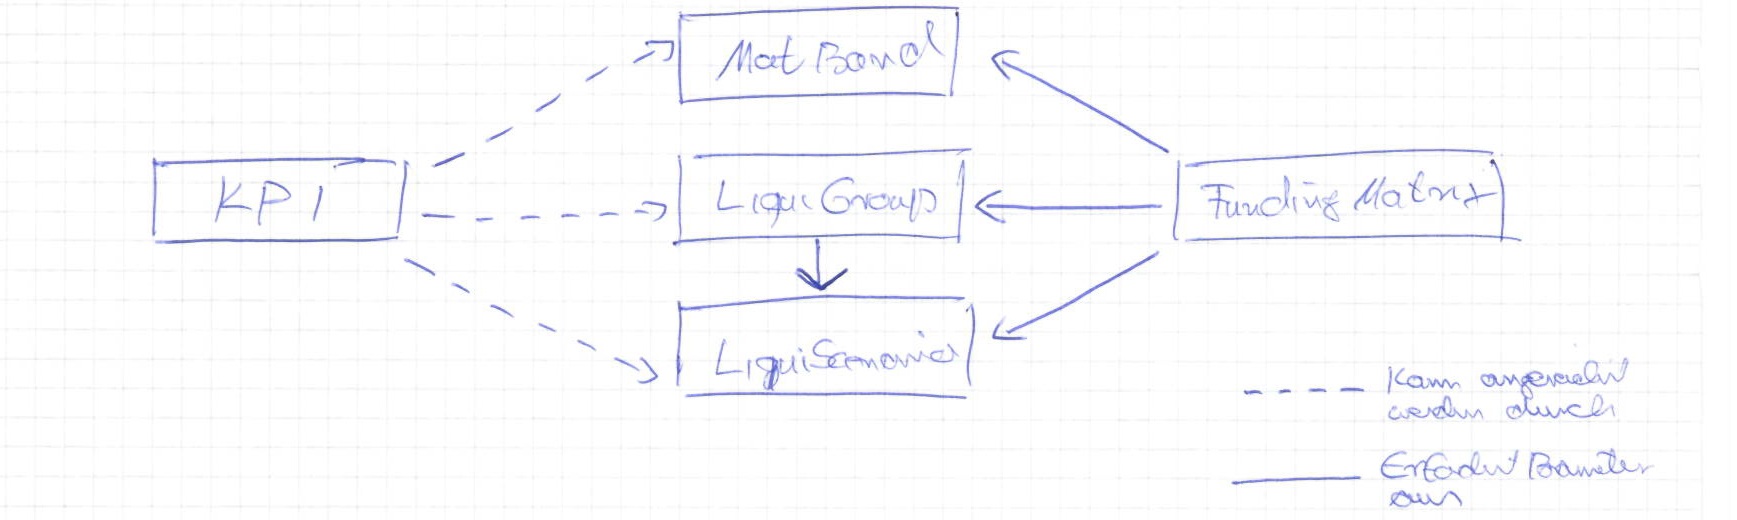 MatBand
KPI
LiquiGroups
Funding Matrix
LiquiScenario
Kann angereichert
werden durch
Erfordert Parameter
aus